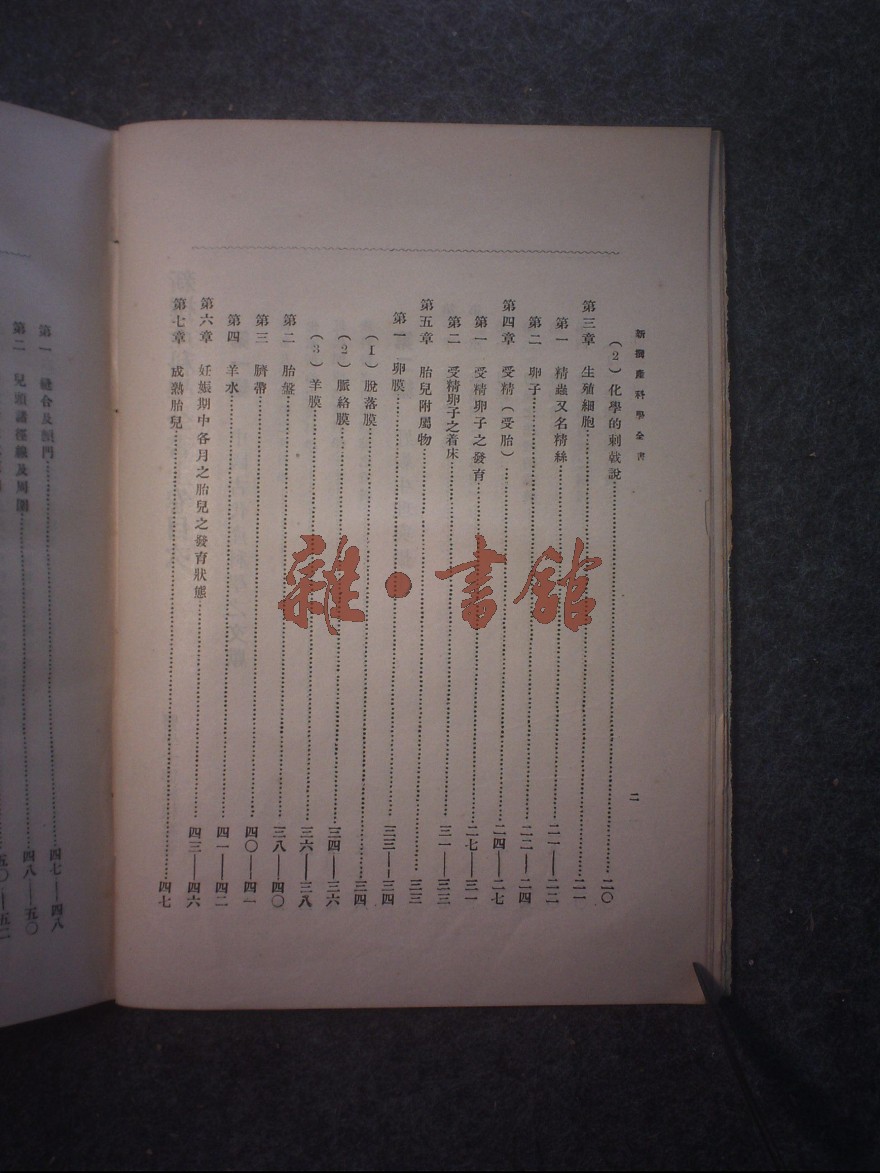 新撰產科學全書
二
(2) 化學的刺戟說 二〇
第三章 生殖細胞 二一
第一 精蟲又名精絲 二一—二二
第二 卵子 二二—二四
第四章 受精(受胎) 二四—二七
第一 受精卵子之發育 二七—三一
第二 受精卵子之着床 三一—三三
第五章 胎兒附屬物 三三
第一 卵膜 三三—三四
(1) 脫落膜 三四
(2) 脈絡膜 三四—三六
(3) 羊膜 三六—三八
第二 胎盤 三八—四〇
第三 臍帶 四〇—四一
第四 羊水 四一—四二
第六章 妊娠期中各月之胎兒之發育狀態 四三—四六
第七章 成熟胎兒 四七
第一 縫合及顖門 四七—四八
第二 兒頭諸徑線及周圍 四八—五〇
五〇—五二
雜·書館